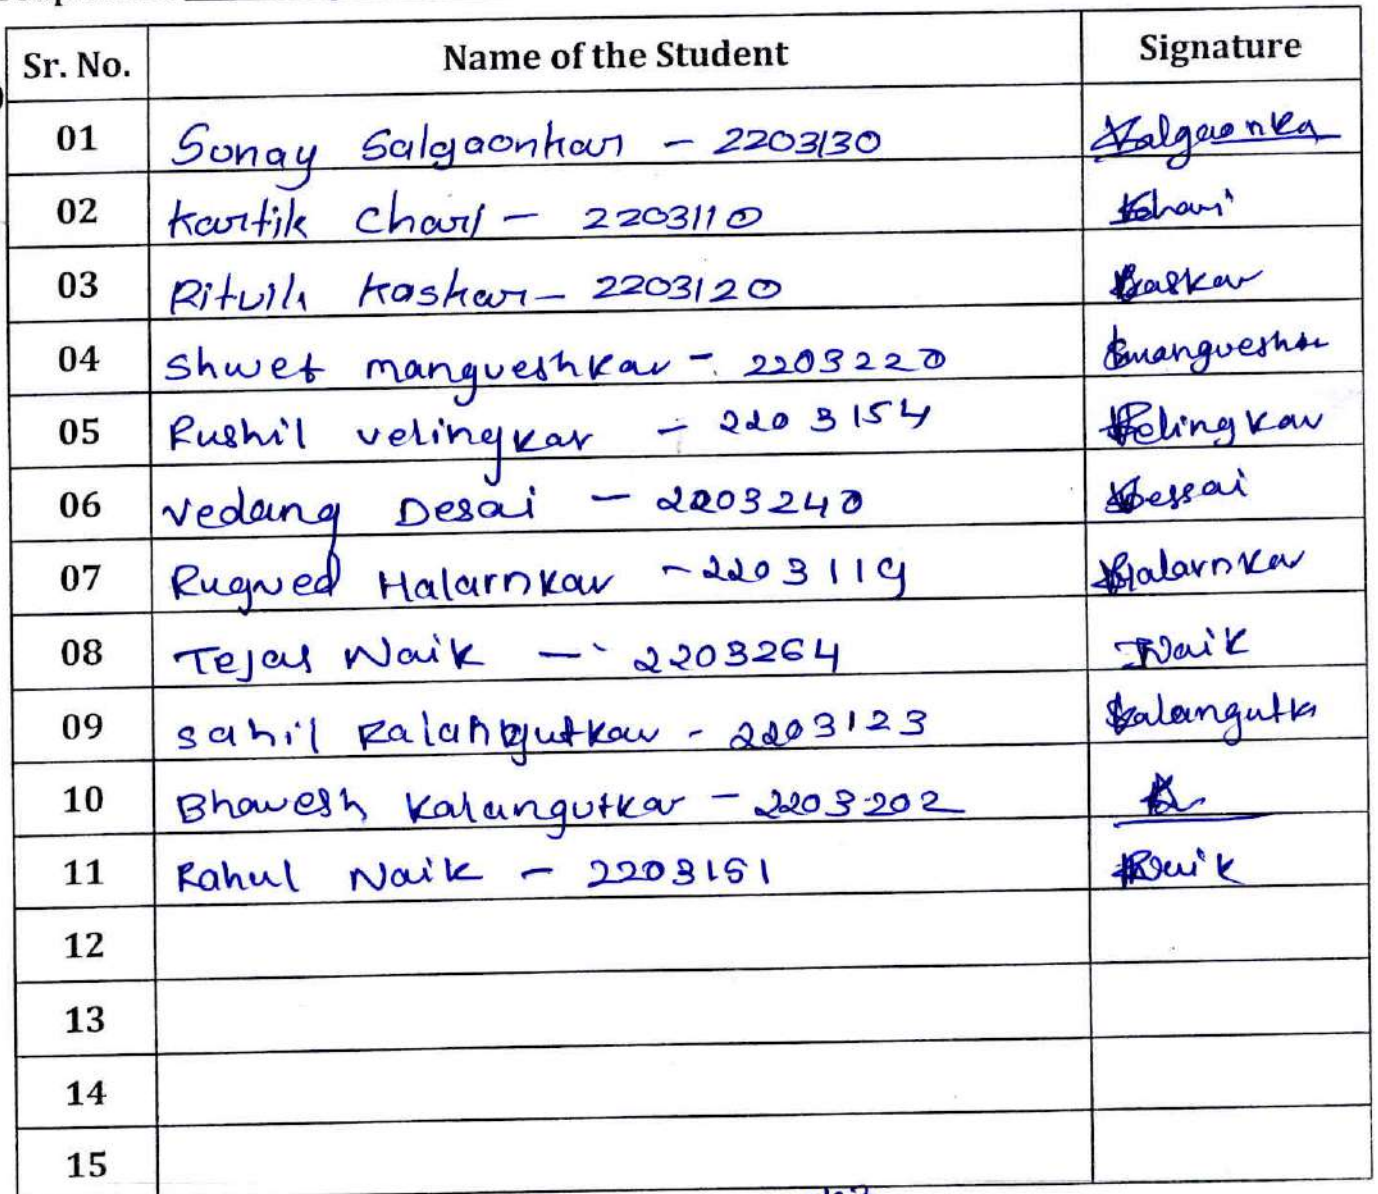 Sr. No. Name of the Student Signature
01 Sonay Salgaonkar - 2203130 Salgaonka
02 Kartik Chari - 2203110 Kchari
03 Ritvik Kaskar - 2203120 Kaskar
04 Shwet mangueshkar - 2203220 Smangueshkr
05 Rushil velingkar - 2203154 Velingkar
06 vedang Desai - 2203240 Dessai
07 Rugved Halarnkar - 2203119 Halarnkar
08 Tejas Naik - 2203264 TNaik
09 sahil Kalangutkar - 2203123 Kalangutk
10 Bhavesh Kalangutkar - 2203202
11 Rahul Naik - 2203151 RNaik
12
13
14
15